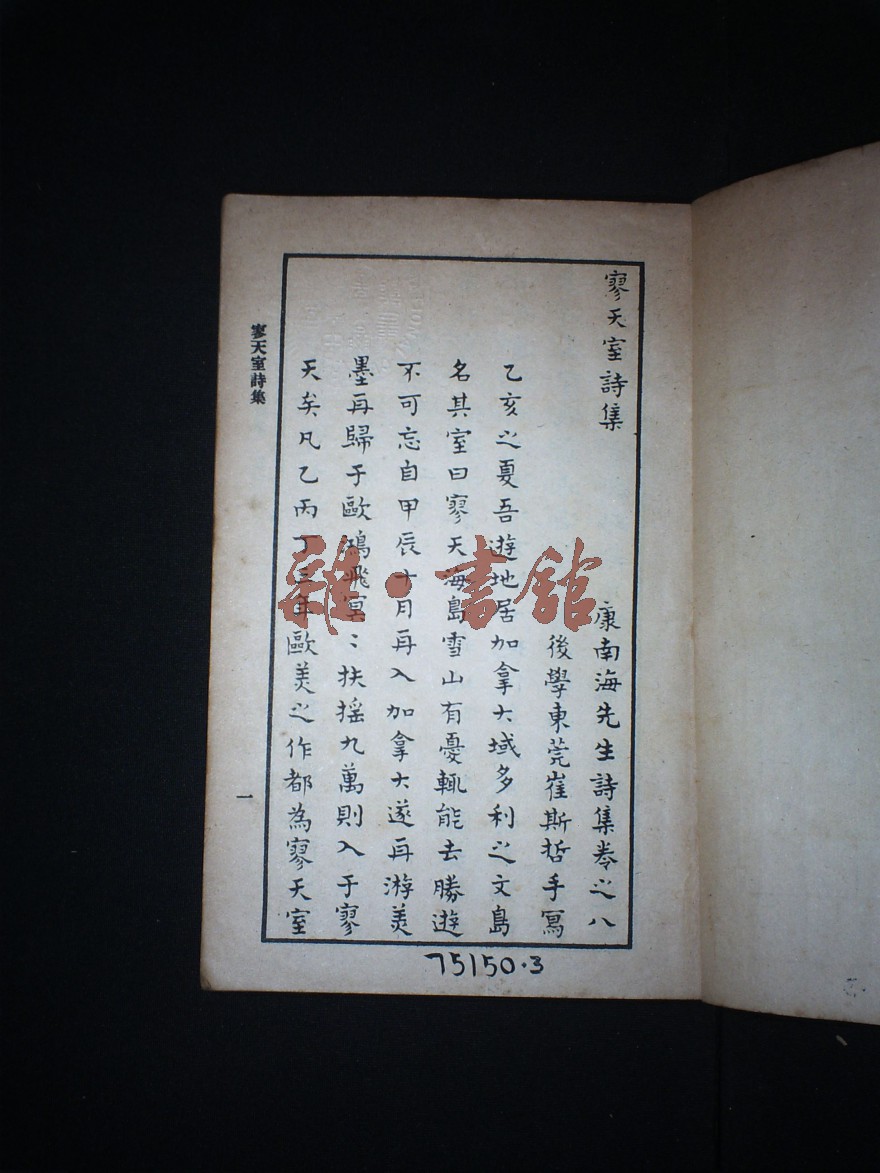 寥天室詩集
康南海先生詩集卷之八
後學東莞崔斯哲手寫
乙亥之夏吾遊地居加拿大域多利之文島
名其室曰寥天海島雪山有憂輒能去勝遊
不可忘自甲辰十月再入加拿大遂再游美
墨再歸于歐鴻飛冥〻扶搖九萬則入于寥
天矣凡乙丙丁三年歐美之作都為寥天室
寥天室詩集
一
75150.3
雜·書館